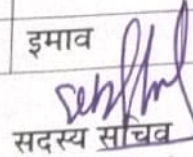 इमाव
सदस्य सचिव